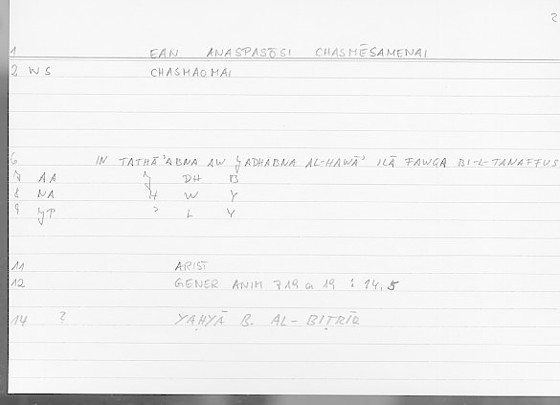 2
1 EAN ANASPASŌSI CHASMĒSAMENAI
2 WS CHASMAOMAI
6 IN TATHĀ'ABNA AW ǦADHABNA AL-HAWĀ' ILĀ FAWQA BI-L-TANAFFUS
7 AA Ǧ DH B
8 NA H W Y
9 ' L Y
11 ARIST
12 GENER ANIM 719 a 19 : 14,5
14 ? YAḤYĀ B. AL-BIṬRĪQ